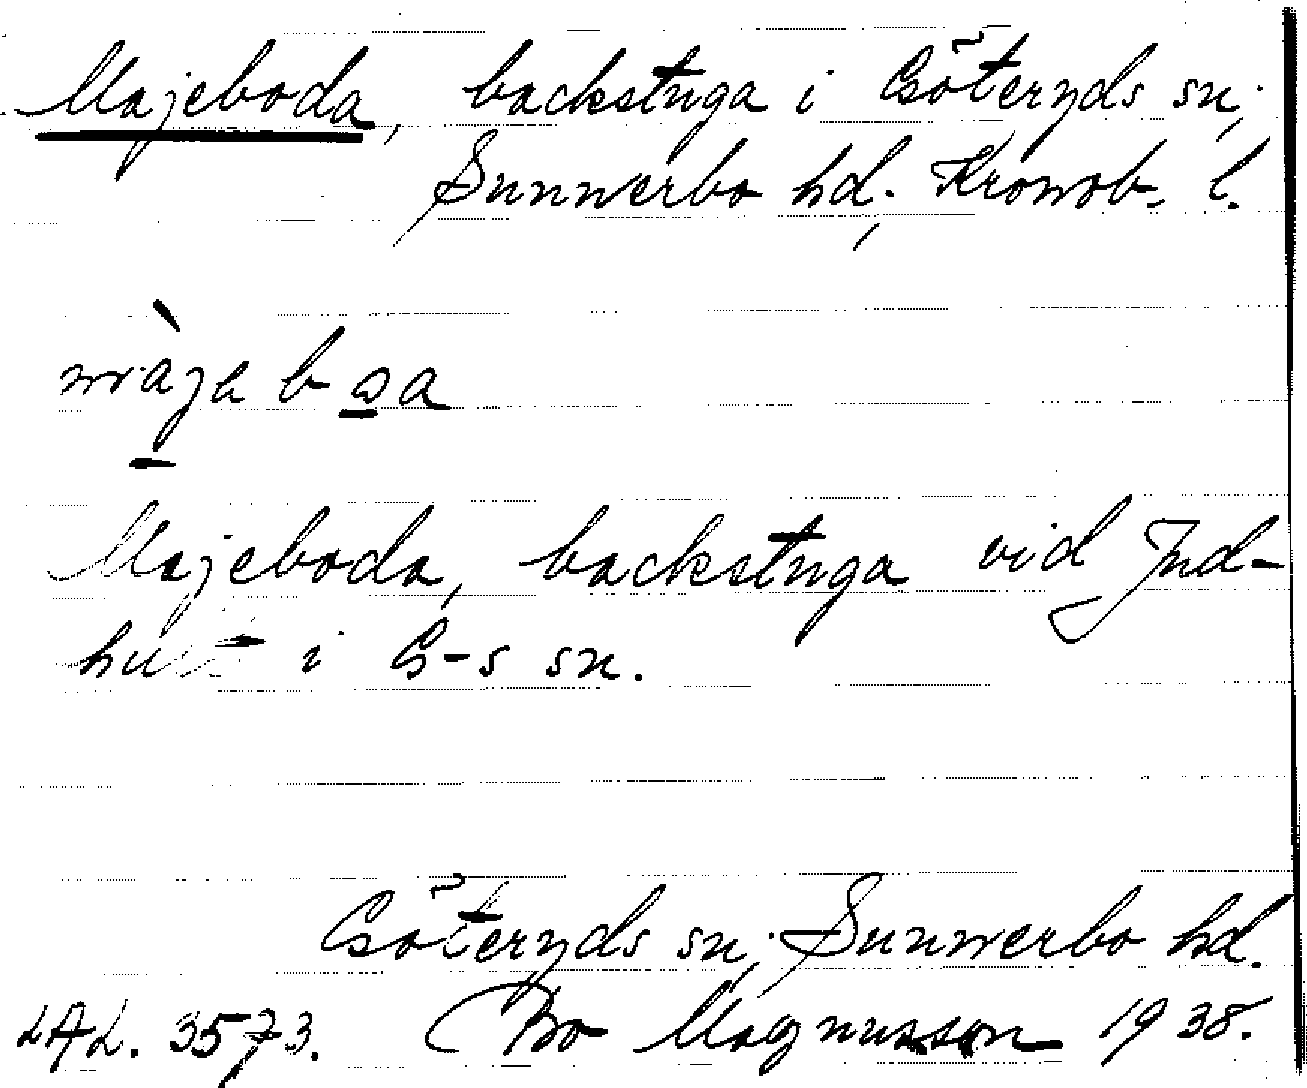 Majeboda, backstuga i Göteryds sn;
Sunnerbo hd; Kronob. l.
Majeboda, backstuga vid Jud-
hult i G-s sn.
Göteryds sn; Sunnerbo hd.
LAL. 3573. Bo Magnusson 1938.